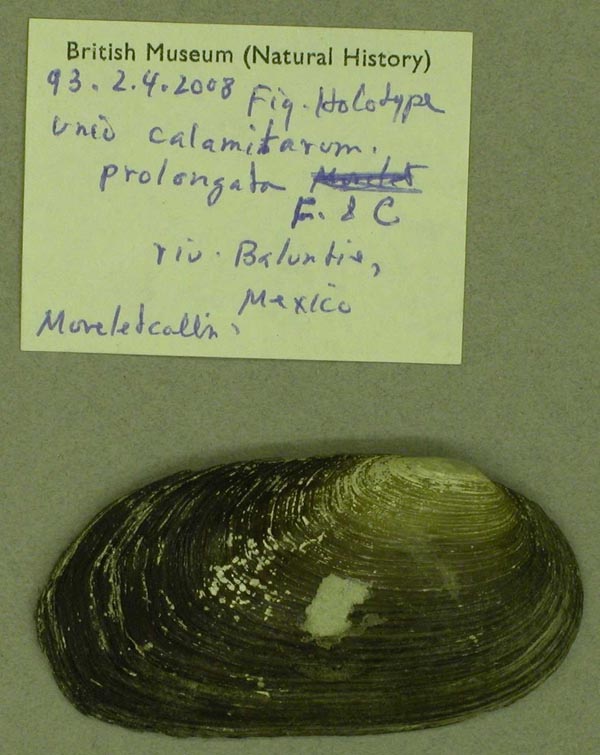 British Museum (Natural History)
93.2.4.2008 Fig. Holotype
Unio calamitarum.
prolongata
F. & C
riv. Baluntie,
Mexico
Morelet colln.